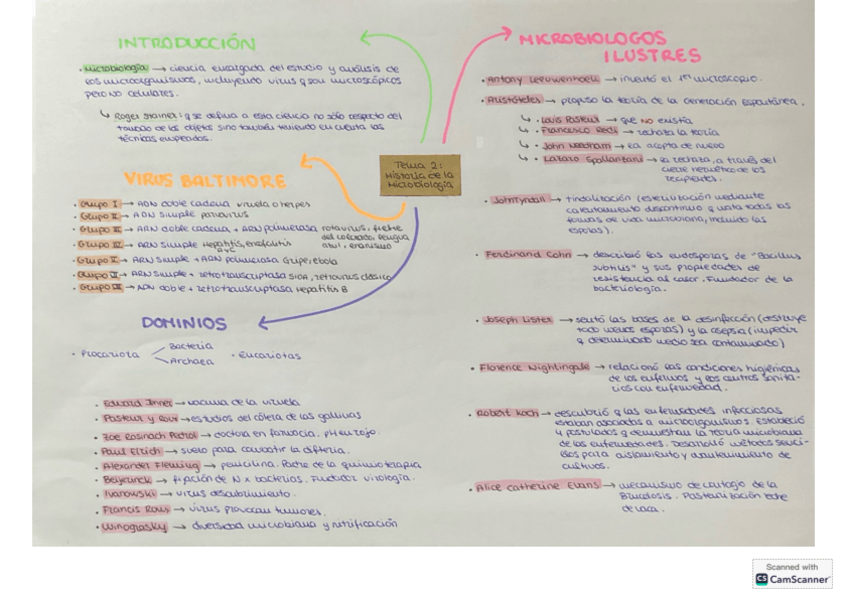 INTRODUCCIÓN
· Microbiología → ciencia encargada del estudio y análisis de
los microorganismos, incluyendo virus q son microscópicos
pero no celulares.
↳ Roger Stainer: q se defina a esta ciencia no sólo respecto del
tamaño de los objetos sino también teniendo en cuenta las
técnicas empleadas.
VIRUS BALTIMORE
· Grupo I → ADN doble cadena viruela o herpes
· Grupo II → ADN simple parvovirus
· Grupo III → ARN doble cadena + ARN polimerasa rotavirus, fiebre
del colorado, lengua
azul
· Grupo IV → ARN simple Hepatitis, encefalitis
A y C
· Grupo V → ARN simple + ARN polimerasa Gripe, ebola
· Grupo VI → ARN simple + retrotranscriptasa SIDA, retrovirus clásico
· Grupo VII → ADN doble + retrotranscriptasa Hepatitis B
DOMINIOS
· Procariota
Bacteria
Archaea
· Eucariotas
· Edward Jenner → vacuna de la viruela
· Pasteur y Roux → estudios del cólera de las gallinas
· Zoe Rosinach Pedrol → doctora en farmacia.
· Paul Elrich → suero para combatir la difteria.
· Alexander Fleming → penicilina. Padre de la quimioterapia
· Beijerinck → fijación de N x bacterias. Fundador virología.
· Ivanowski → virus descubrimiento.
· Francis Rous → virus provocan tumores.
· Winograsky → diversidad microbiana y nitrificación
Tema 2:
Historia de la
Microbiología
MICROBIOLOGOS
ILUSTRES
· Antony Leeuwenhoek → inventó el 1er microscopio.
· Aristóteles → propuso la teoría de la generación espontánea.
↳ · Louis Pasteur → que NO existía
↳ · Francesco Redi → rechaza la teoría
↳ · John Needham → la acepta de nuevo
↳ · Lazaro Spallanzani → la rechaza, a través del
cierre hermético de los
recipientes.
· John Tyndall → tindalización (esterilización mediante
calentamiento discontinuo q mata todas las
formas de vida microbiana, incluido las
esporas).
· Ferdinand Cohn → describió las endosporas de "Bacillus
subtilus" y sus propiedades de
resistencia al calor. Fundador de la
bacteriología.
· Joseph Lister → sentó las bases de la desinfección (destruye
todo menos esporas) y la asepsia (impedir
q determinado medio sea contaminado)
· Florence Nightingale → relacionó las condiciones higiénicas
de los enfermos y los centros sanita-
rios con enfermedad.
· Robert Koch → descubrió q las enfermedades infecciosas
estaban asociadas a microorganismos. Estableció
4 postulados q demuestran la teoría microbiana
de las enfermedades. Desarrolló métodos senci-
llos para aislamiento y mantenimiento de
cultivos.
· Alice Catherine Evans → mecanismo de contagio de la
Brucelosis. Pasteurización leche
de vaca.
Scanned with
CS CamScanner